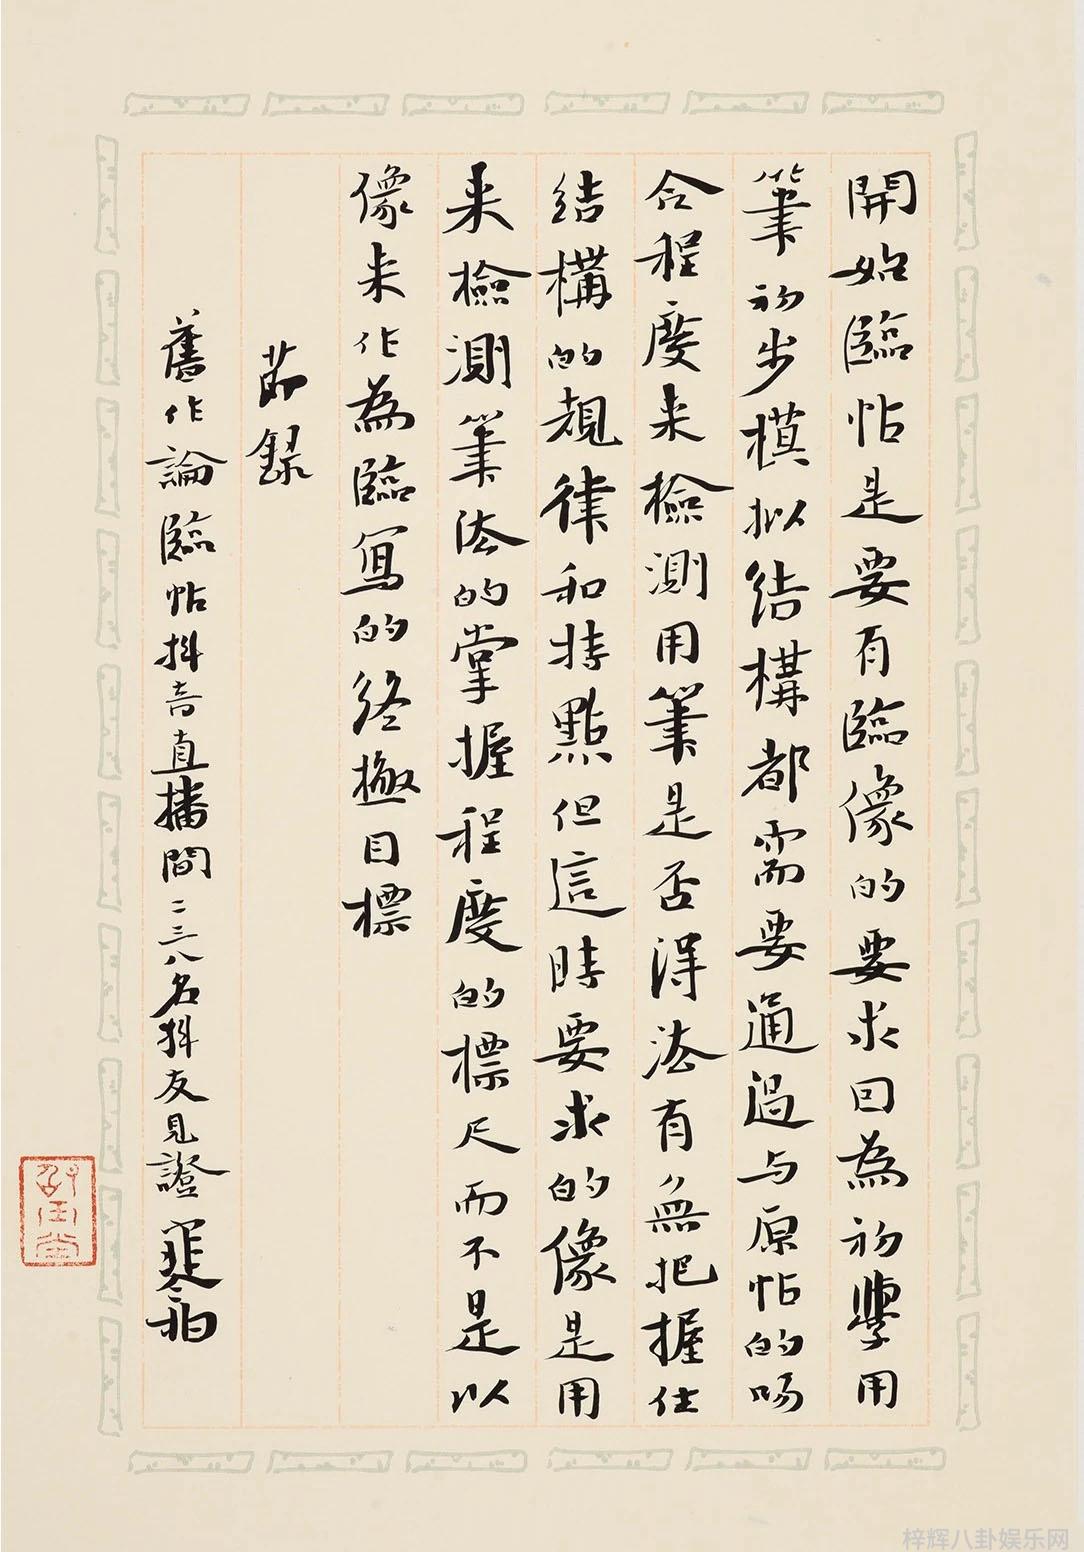 開始臨帖是要有臨像的要求囙為初學用
筆初步模拟结構都需要通過与原帖的吻
合程度来檢測用筆是否得法有無把握住
结構的規律和特點但這時要求的像是用
来檢測筆法的掌握程度的標尺而不是以
像来作為臨寫的终極目標
節録
舊作論臨帖抖音直播間二三八名抖友見證
梓辉八卦娱乐网